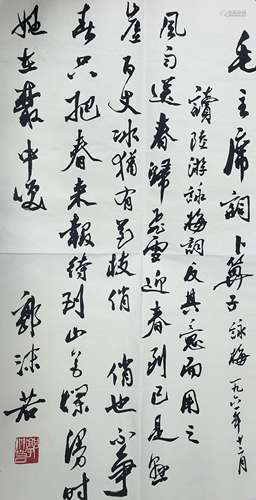 毛主席詞卜算子 詠梅 一九六一年十二月
讀陸游詠梅詞反其意而用之
風雨送春歸飛雪迎春到已是懸
崖百丈冰猶有花枝俏 俏也不爭
春只把春來報待到山花爛漫時
她在叢中笑
郭沫若